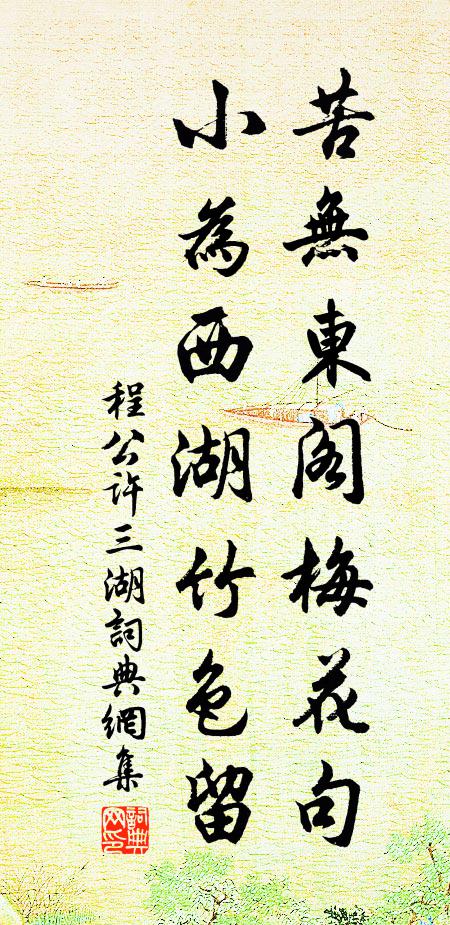 苦無東閣梅花句
小為西湖竹色留
程公許三湖詞典網集
詞典网印